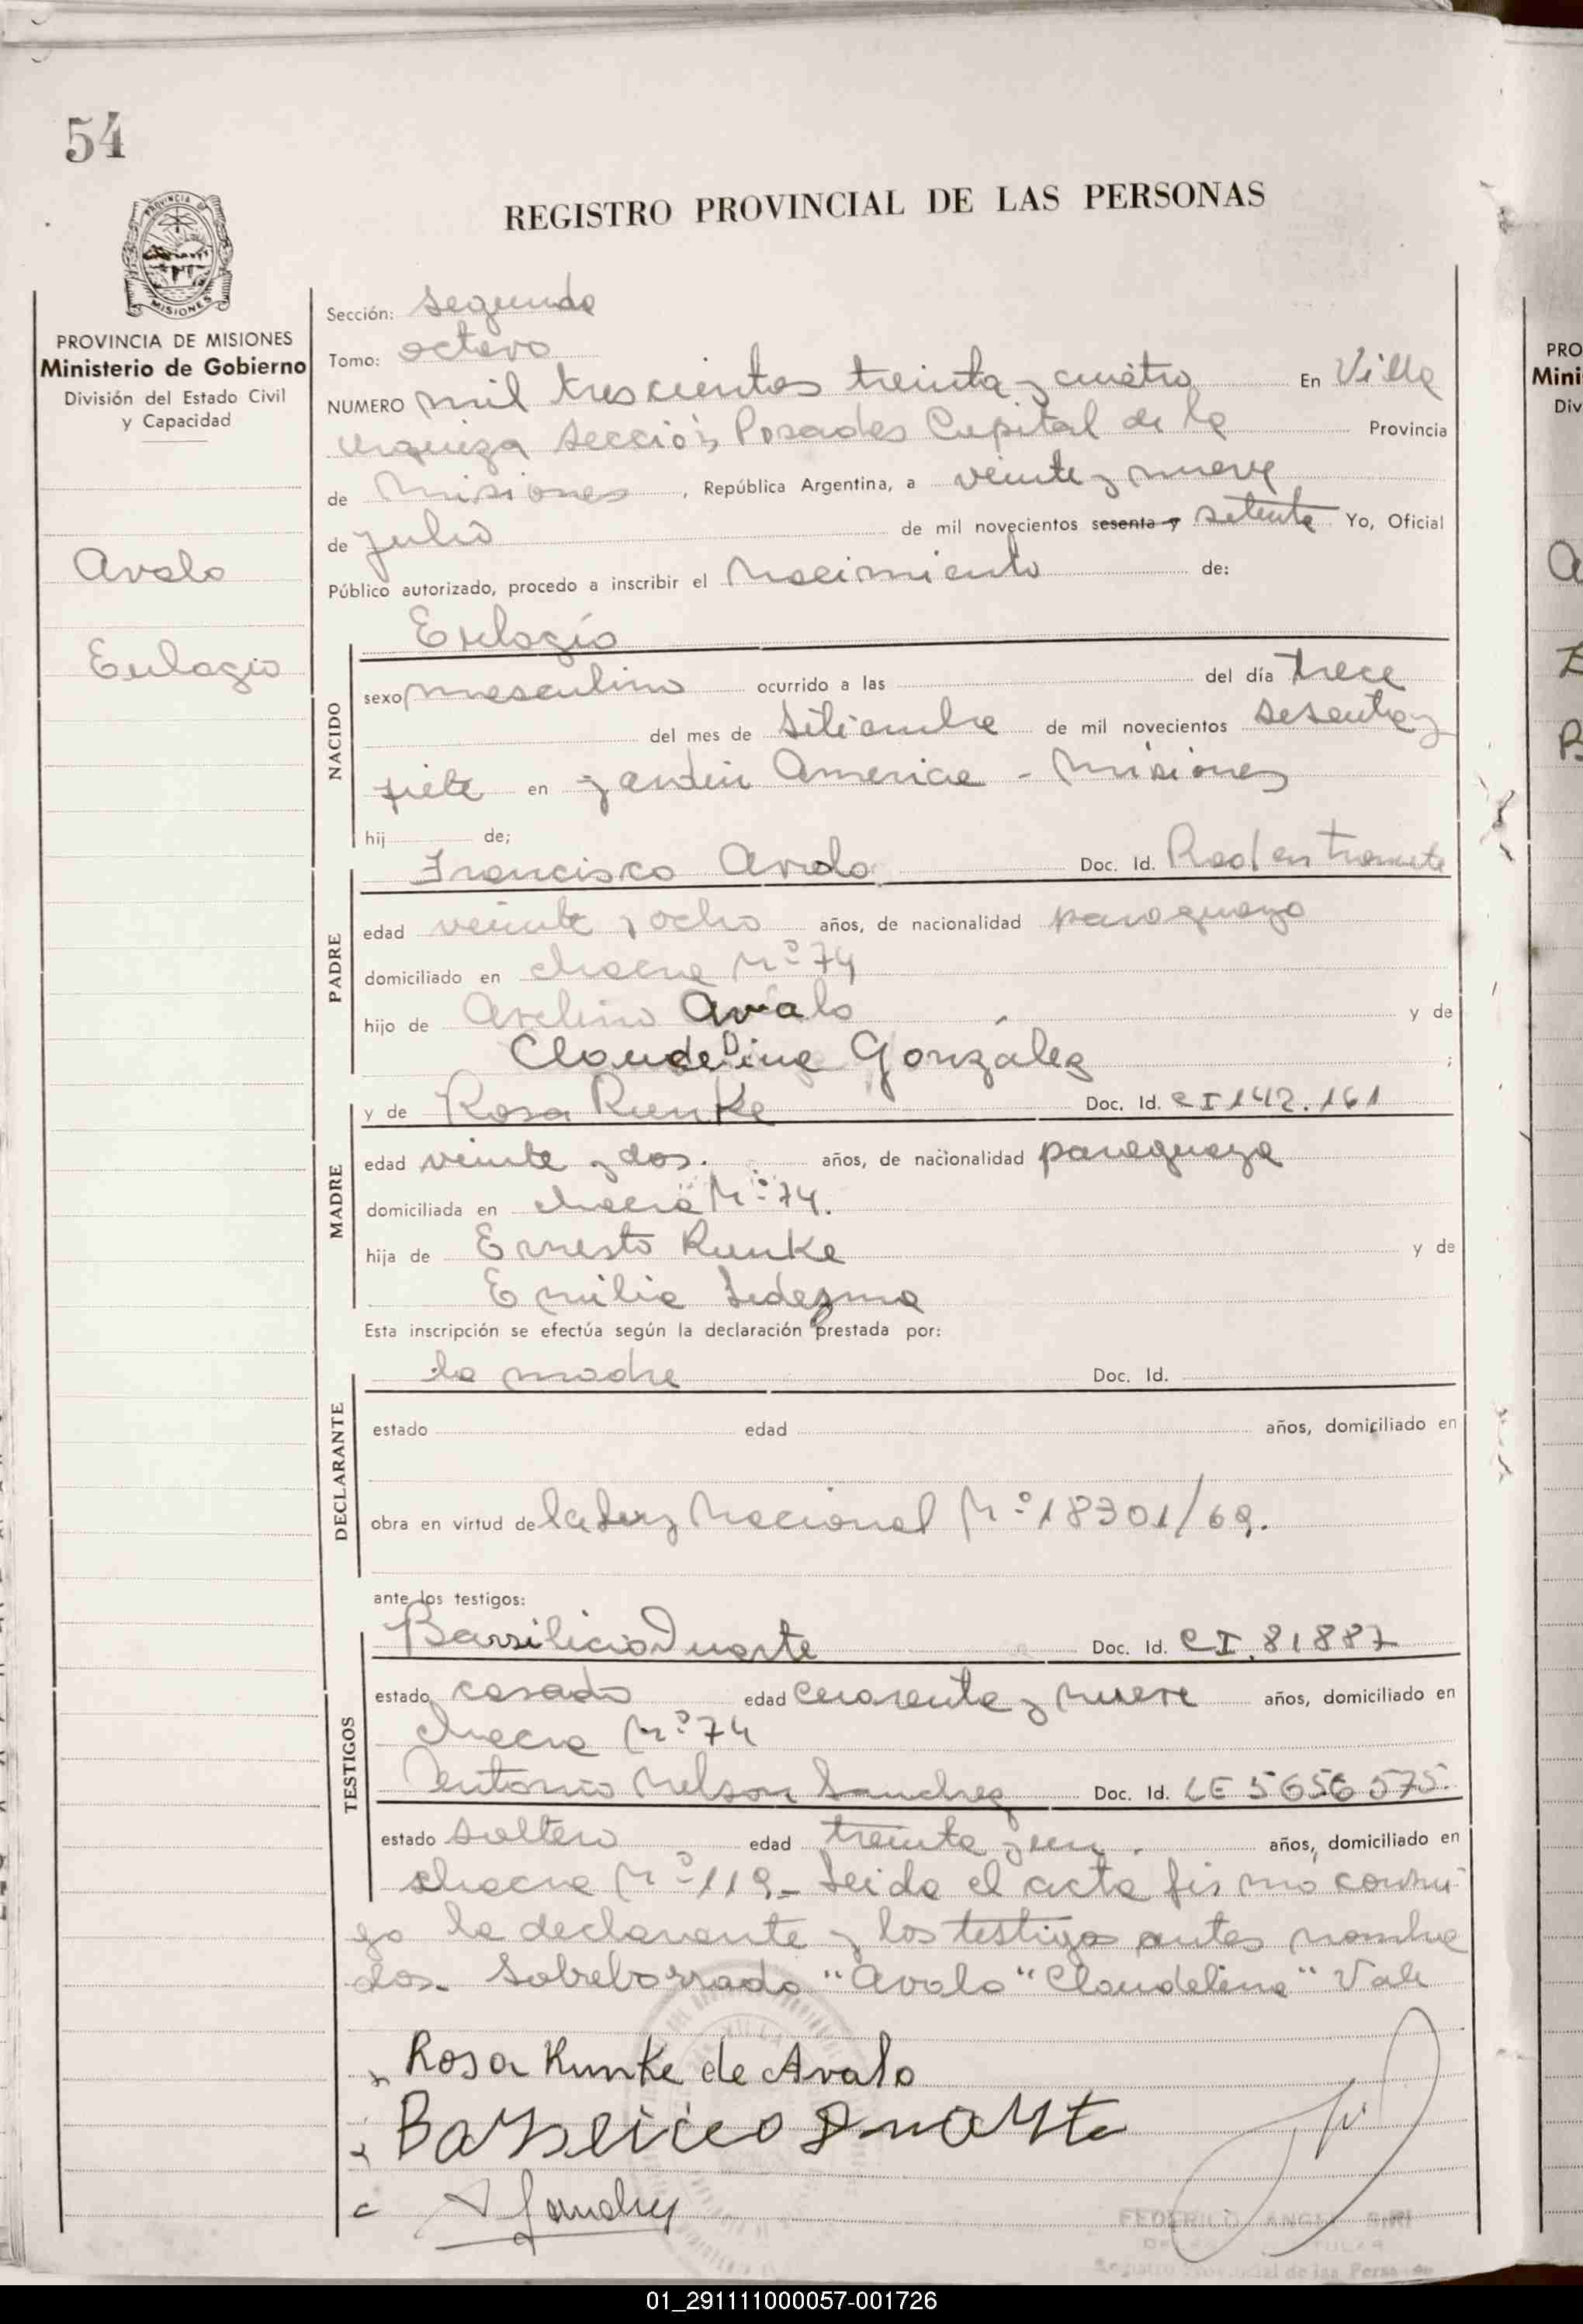 54
REGISTRO PROVINCIAL DE LAS PERSONAS
PROVINCIA DE MISIONES
Ministerio de Gobierno
División del Estado Civil
y Capacidad
Avalo
Eulogio
Sección: segunda
Tomo: octavo
NUMERO mil trescientos treinta y cuatro En Villa
Urquiza Sección Posadas Capital de la Provincia
de Misiones, República Argentina, a veinte y nueve
de julio de mil novecientos sesenta y setenta Yo, Oficial
Público autorizado, procedo a inscribir el Nacimiento de:
Eulogio
NACIDO
sexo masculino ocurrido a las del día trece
del mes de Setiembre de mil novecientos sesenta y
siete en Jardín America - Misiones
hij de;
Francisco Avalo Doc. Id. Rad en tramite
PADRE
edad veinte y ocho años, de nacionalidad paraguayo
domiciliado en chacra Nº 74
hijo de Avelino Avalo y de
Claudelina González ;
y de Rosa Runke Doc. Id. CI 142.161
MADRE
edad veinte y dos. años, de nacionalidad paraguaya
domiciliada en chacra Nº 74.
hija de Ernesto Runke y de
Emilia Ledezma
Esta inscripción se efectúa según la declaración prestada por:
la madre Doc. Id.
DECLARANTE
estado edad años, domiciliado en
obra en virtud de la Ley Nacional Nº 18301/69.
ante los testigos:
Bassilicio Duarte Doc. Id. CI. 81887
TESTIGOS
estado casado edad cuarenta y nueve años, domiciliado en
chacra Nº 74
Antonio Nelson Sanchez Doc. Id. LE 5656575.
estado soltero edad treinta y un. años, domiciliado en
chacra Nº 119_ Leida el acta firma conmi
go la declarante y los testigos antes nombra
dos. Sobreborrado "Avalo" "Claudelina" Vale
Rosa Runke de Avalo
Bassilicio Duarte
A Sanchez
FEDERICO ANGEL SIRI
Registro Provincial de las Personas
PRO
Mini
Div
01_291111000057-001726